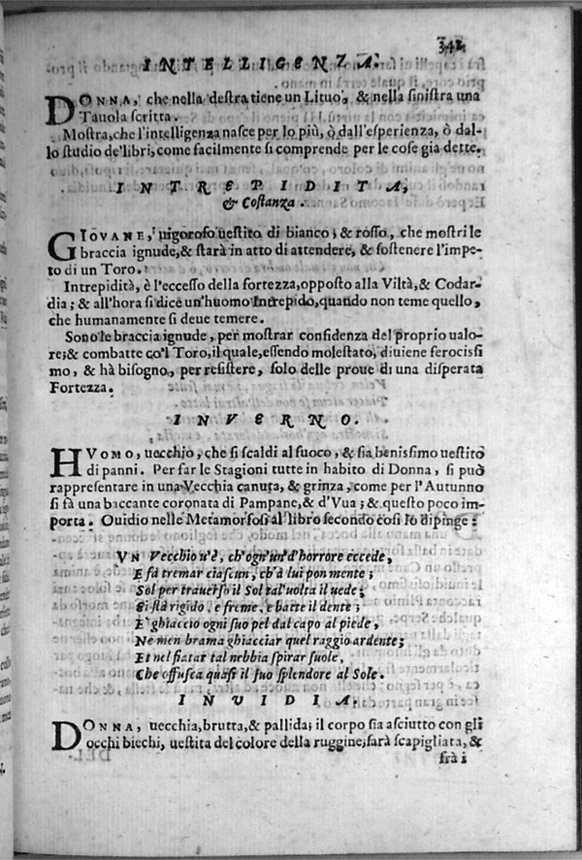 342
INTELLIGENZA.
DONNA, che nella destra tiene un Lituo, & nella sinistra una
Tauola scritta.
Mostra, che l'intelligenza nasce per lo più, ò dall'esperienza, ò dal-
lo studio de'libri, come facilmente si comprende per le cose gia dette.
INTREPIDITA,
& Costanza.
GIOVANE, uigoroso uestito di bianco, & rosso, che mostri le
braccia ignude, & starà in atto di attendere, & sostenere l'impe-
to di un Toro.
Intrepidità, è l'eccesso della fortezza, opposto alla Viltà, & Codar-
dia; & all'hora si dice un'huomo Intrepido, quando non teme quello,
che humanamente si deue temere.
Sono le braccia ignude, per mostrar confidenza del proprio ualo-
re; & combatte co'l Toro, il quale, essendo molestato, diuiene ferocissi
mo, & hà bisogno, per resistere, solo delle proue di una disperata
Fortezza.
INVERNO.
HVOMO, uecchio, che si scaldi al fuoco, & sia benissimo uestito
di panni. Per far le Stagioni tutte in habito di Donna, si può
rappresentare in una Vecchia canuta, & grinza, come per l'Autunno
si fà una baccante coronata di Pampane, & d'Vua; & questo poco im-
porta. Ouidio nelle Metamorfosi al libro secondo così lo dipinge:
VN Vecchio u'è, ch'ogn'un d'horrore eccede,
E fà tremar ciascun, ch'à lui pon mente;
Sol per trauerso il Sol tal'uolta il uede;
Ei stà rigido, e freme, e batte il dente;
E' ghiaccio ogni suo pel dal capo al piede,
Ne men brama ghiacciar quel raggio ardente;
Et nel fiatar tal nebbia spirar suole,
Che offusca quasi il suo splendore al Sole.
INVIDIA.
DONNA, uecchia, brutta, & pallida; il corpo sia asciutto con gli
occhi biechi, uestita del colore della ruggine; sarà scapigliata, &
frà i